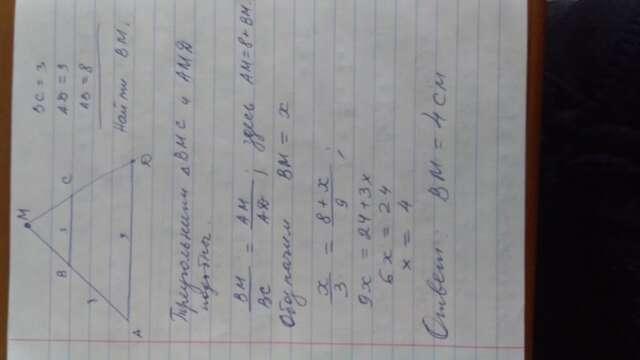 M
B 3 C
8
A 9 D
BC = 3
AD = 9
AB = 8
Найти BM.
Треугольники △BMC и AMD
подобны.
BM/BC = AM/AD ; здесь AM=8+BM
Обозначим BM = x
x/3 = 8+x/9 ;
9x = 24+3x
6x = 24
x = 4
Ответ: BM = 4 см